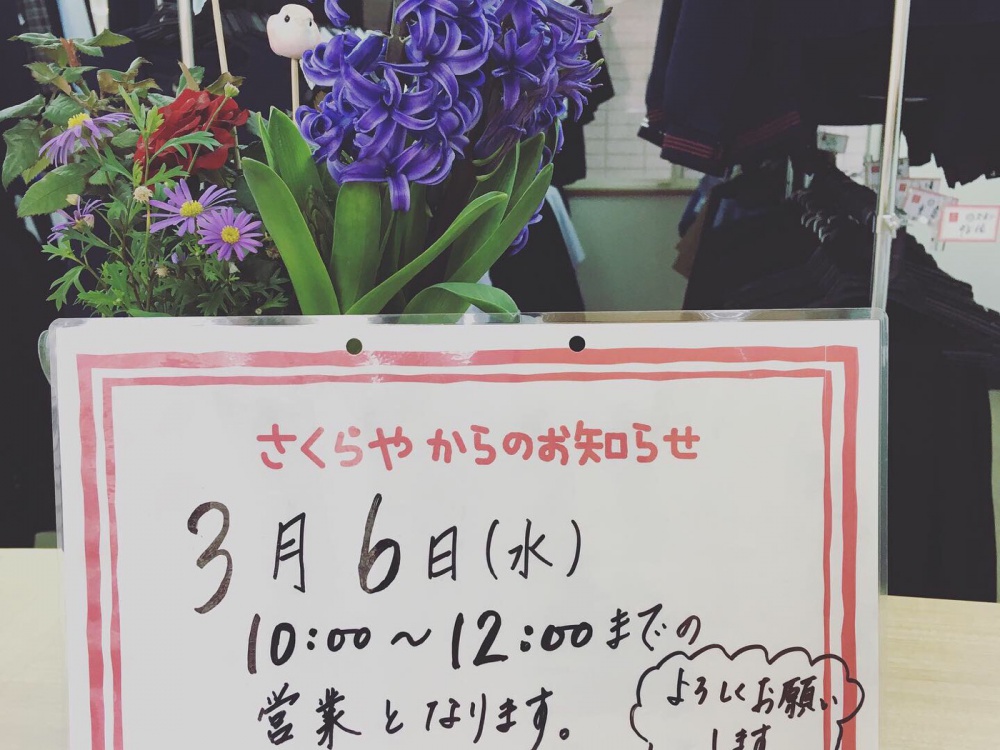 さくらや からのお知らせ
3月6日(水)
10:00～12:00までの
営業となります。
よろしくお願い
します